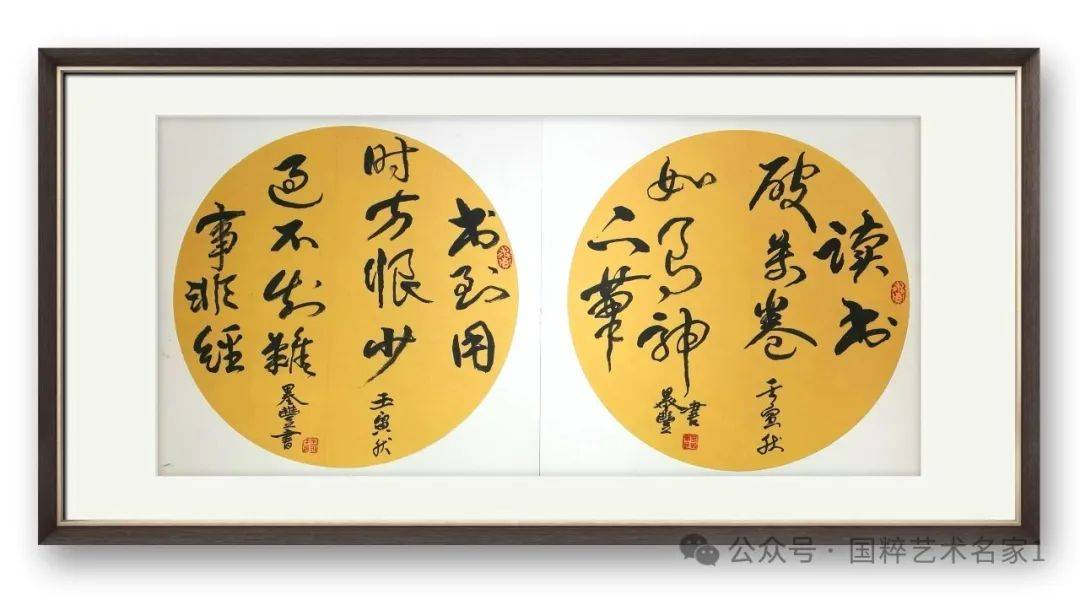 读书
破萬卷
壬寅秋
下筆
如有神
墨豐書
书到用
时方恨少
壬寅秋
事非經
过不知難
墨豐書
公众号 · 国粹艺术名家1